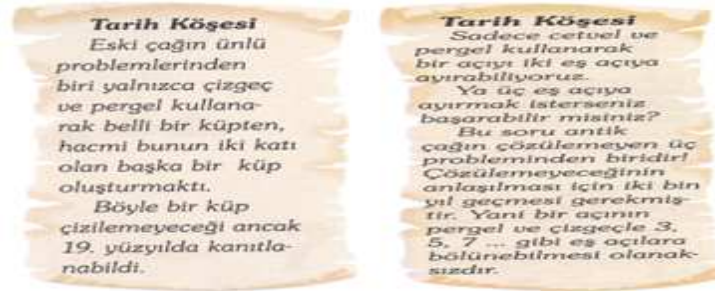 Tarih Köşesi
Eski çağın ünlü
problemlerinden
biri yalnızca çizgeç
ve pergel kullana-
rak belli bir küpten,
hacmi bunun iki katı
olan başka bir küp
oluşturmaktı.
Böyle bir küp
çizilemeyeceği ancak
19. yüzyılda kanıtla-
nabildi.
Tarih Köşesi
Sadece cetvel ve
pergel kullanarak
bir açıyı iki eş açıya
ayırabiliyoruz.
Ya üç eş açıya
ayırmak isterseniz
başarabilir misiniz?
Bu soru antik
çağın çözülemeyen üç
probleminden biridir!
Çözülemeyeceğinin
anlaşılması için iki bin
yıl geçmesi gerekmiş-
tir. Yani bir açının
pergel ve çizgeçle 3,
5, 7 ... gibi eş açılara
bölünebilmesi olanak-
sızdır.